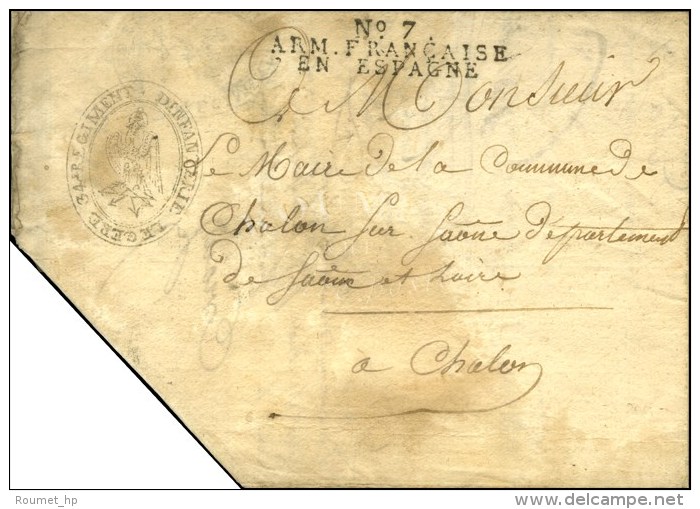 No 7.
ARM. FRANÇAISE
EN ESPAGNE
34me REGIMENT D'INFANTERIE LEGERE
A Monsieur
Le Maire de la Commune de
Chalon sur Saône Département
de Saône et Loire
à Chalon
Roumet_hp
delcampe.net